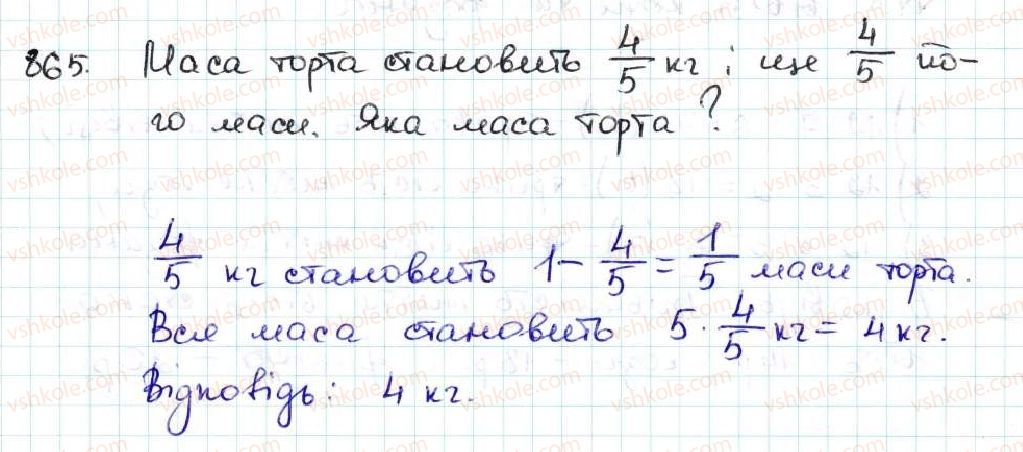 865. Маса торта становить 4/5 кг і ще 4/5 йо-
го маси. Яка маса торта?
4/5 кг становить 1 - 4/5 = 1/5 маси торта.
Вся маса становить 5 · 4/5 кг = 4 кг.
Відповідь: 4 кг.